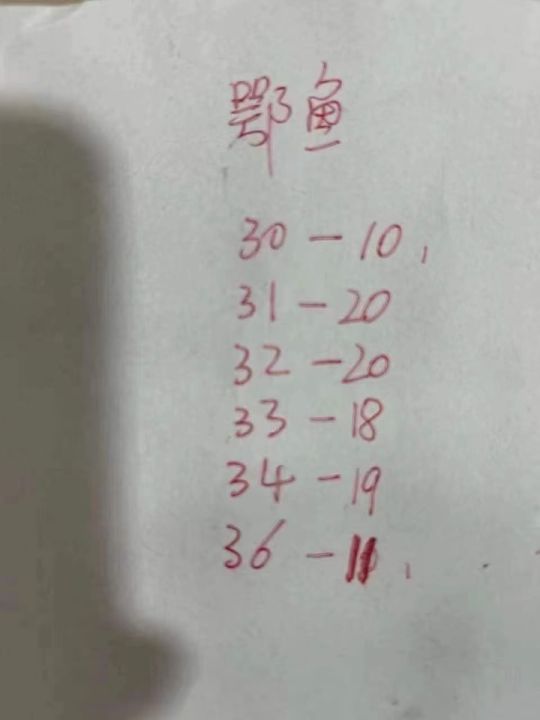 鄂鱼
30-10,
31-20
32-20
33-18
34-19
36-11,